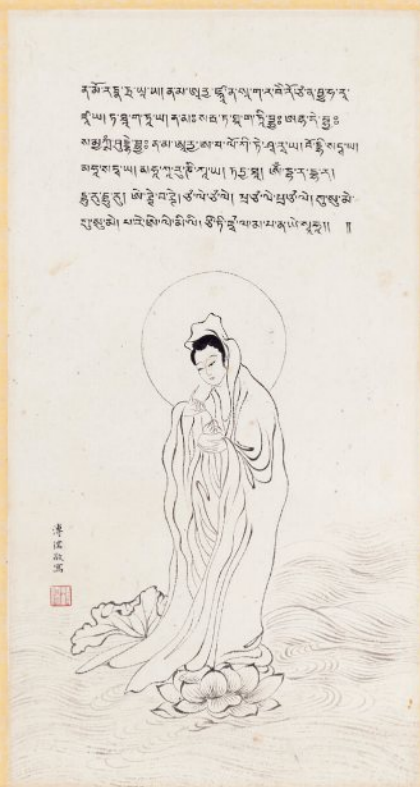 ན་མོ་རཏྣ་ཏྲ་ཡཱ་ཡ། ནམ་ཨཱརྱ་ཛྙཱ་ན་སཱ་ག་ར་བཻ་རོ་ཙ་ན་བྱཱུ་ཧ་རཱ་
ཛཱ་ཡ། ཏ་ཐཱ་ག་ཏཱ་ཡ། ན་མཿ་སརྦ་ཏ་ཐཱ་ག་ཏེ་བྷྱཿ ཨརྷ་ཏེ་བྷྱཿ
སམྱཀྶཾ་བུདྡྷེ་བྷྱཿ ན་མ་ཨཱརྱ་ཨ་ཝ་ལོ་ཀི་ཏེ་ཤྭ་རཱ་ཡ། བོ་དྷི་སཏྭཱ་ཡ།
མཧཱ་སཏྭཱ་ཡ། མཧཱ་ཀཱ་རུ་ཎི་ཀཱ་ཡ། ཏདྱ་ཐཱ། ཨོཾ་དྷ་ར་དྷ་ར།
དྷུ་རུ་དྷུ་རུ། ཨི་ཊྚེ་ཝ་ཊྚེ། ཙ་ལེ་ཙ་ལེ། པྲ་ཙ་ལེ་པྲ་ཙ་ལེ། ཀུ་སུ་མེ་
ཀུ་སུ་མེ། ཝ་རེ་ཨི་ལི་མི་ལི། ཙི་ཏི་ཛྭ་ལ་མ་པ་ན་ཡེ་སྭཱ་ཧཱ།། །།
溥儒敬寫